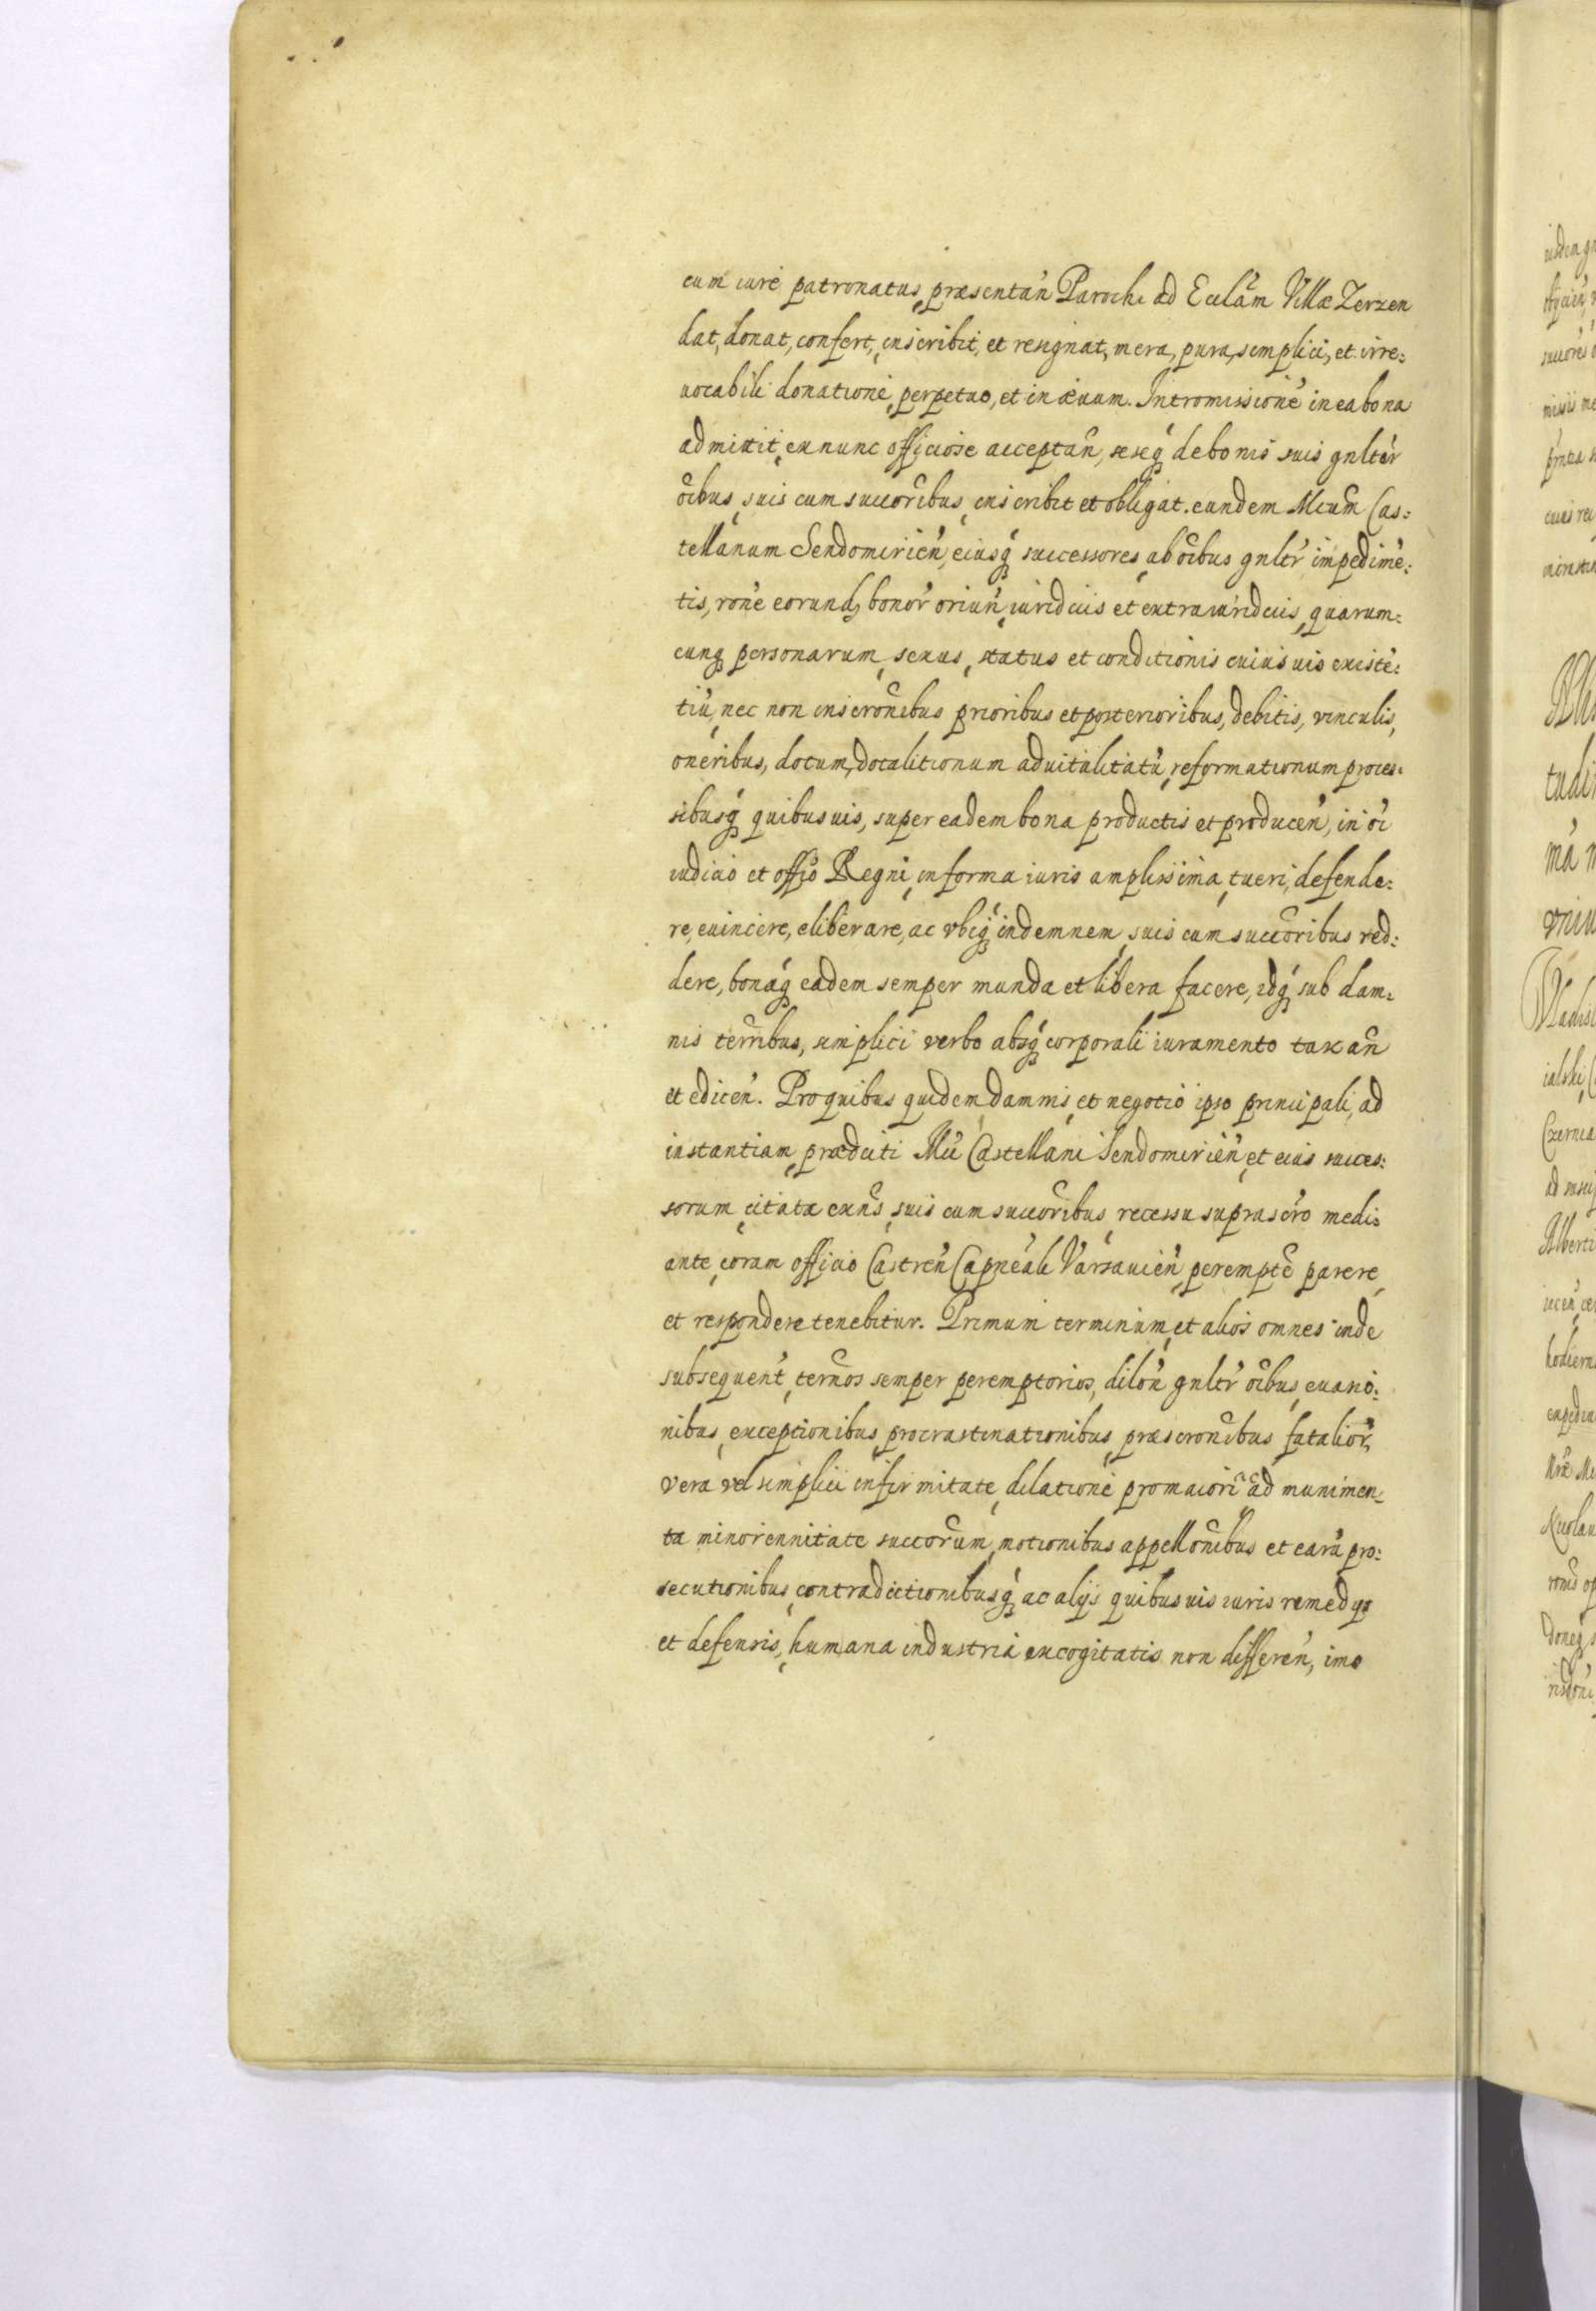 cum iure patronatus, præsentan̄ Parochi ad Ecclām Villæ Zerzen
dat, donat, confert, inscribit, et resignat, mera, pura, simplici, et irre:
uocabili donatione, perpetuo, et in æuum. Intromissionē in ea bona
admittit, ex nunc officiose acceptan̄, seseq́ꝫ de bonis suis gnltēr
oībus, suis cum succōribus, inscribit et obligat. eundem Mcūm Cas:
tellanum Sendomirien̄, eiusq́ꝫ successores, ab oībus gnltr̄ impedimē:
tis, rōne eorundꝫ bonor̄ oriun̄, iuridicis et extraiuridicis, quarum:
cunqꝫ personarum, sexus, status et conditionis cuiusuis existē:
tiū, nec non inscrōnibus prioribus et posterioribus, debitis, vinculis,
oneribus, dotum, dotalitionum aduitalitatū, reformationum proces:
sibusq́ꝫ quibusuis, super eadem bona productis et producen̄, in oī
iudicio et offō Regni, in forma iuris amplissima, tueri, defende:
re, euincere, eliberare, ac vbiq́ꝫ indemnem, suis cum succōribus red:
dere, bonaq́ꝫ eadem semper munda et libera facere, idq́ꝫ sub dam:
nis terr̄ibus, simplici verbo absq́ꝫ corporali iuramento taxan̄
et edicen̄. Pro quibus quidem damnis, et negotio ipso principali, ad
instantiam, prædicti Mcī Castellani Sendomirien̄, et eius succes:
sorum, citatæ exn̄s, suis cum succōribus, recessu suprascr̄o medi:
ante, coram officio Castren̄ Capnēali Varsauien̄, peremptē parere,
et respondere tenebitur. Primum terminum, et alios omnes inde
subsequen̄t, ter̄nos semper peremptorios, dilōn gnltr̄ oībus, euasiō:
nibus, exceptionibus, procrastinationibus, præscrōnibus fatalior̄,
vera vel simplici infirmitate, dilatione pro maiori, ad munimen:
ta minorennitate succōrum, motionibus appellōnibus et earū pro:
secutionibus, contradictionibusq́ꝫ ac alijs quibusuis iuris remedijs
et defensis, humana industria excogitatis non differen̄, imo